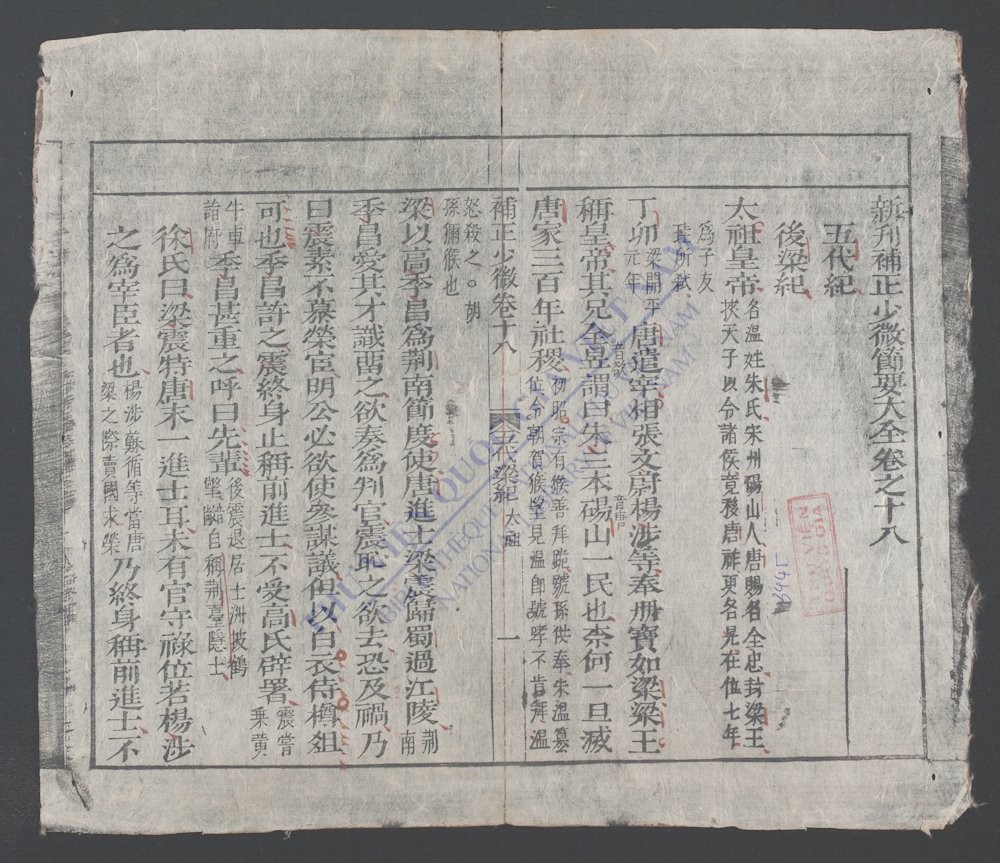 新刊補正少微節要大全卷之十八
五代紀
後梁紀
太祖皇帝 名溫姓朱氏宋州碭山人唐賜名全忠封梁王
挾天子以令諸侯竟移唐祚更名晃在位七年
爲子友
珪所弒
丁卯 梁開平
元年 唐遣宰相張文蔚楊涉等奉册寶如梁梁王
音敬 音唐
稱皇帝其兄全昱謂曰朱三本碭山一民也柰何一旦滅
唐家三百年社稷 初昭宗有猴善拜跪號孫供奉朱溫篡
位令朝賀猴望見溫卽號呼不肯拜溫
補正少微卷十八 五代梁紀 太祖 一
怒殺之。胡
孫猢猴也
梁以高季昌爲荆南節度使唐進士梁震歸蜀過江陵 荆
南
季昌愛其才識畱之欲奏爲判官震恥之欲去恐及禍乃
曰震素不慕榮宦明公必欲使參謀議但以白衣侍樽俎
可也季昌許之震終身止稱前進士不受高氏辟署 震嘗
乘黄
牛車
詣府 季昌甚重之呼曰先輩 後震退居士洲披鶴
氅自稱荆臺隱士
徐氏曰梁震特唐末一進士耳未有官守祿位若楊涉
之爲宰臣者也 楊涉蘇循等當唐
梁之際賣國求榮 乃終身稱前進士不
THƯ VIỆN QUỐC GIA VIỆT NAM
BIBLIOTHÈQUE NATIONALE DU VIETNAM
NATIONAL LIBRARY OF VIETNAM
THƯ VIỆN
QUỐC GIA